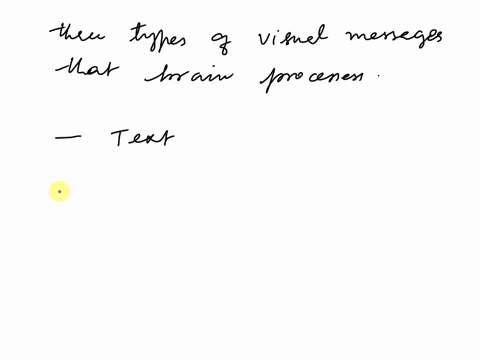 three types of visual messages
that brain process.
— Text